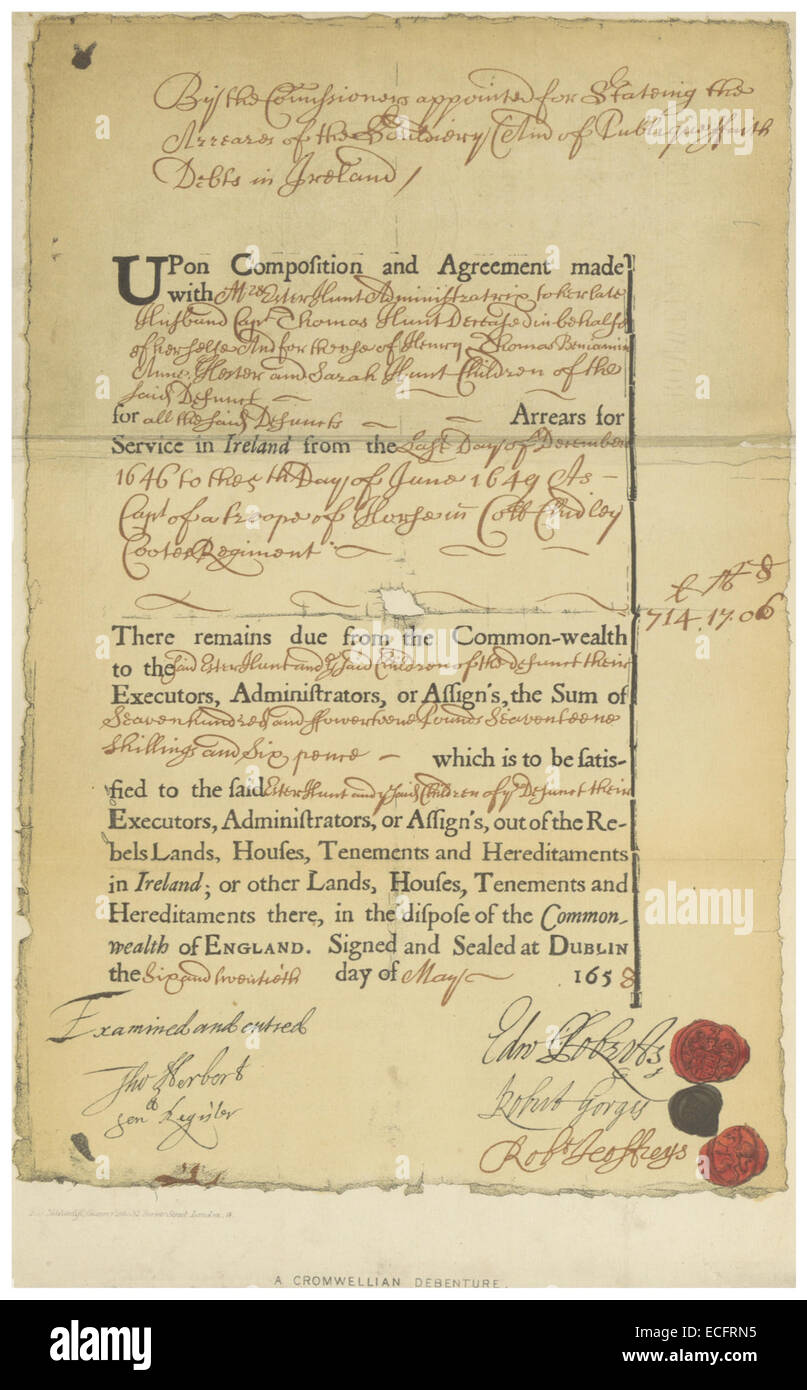 By the Comissioners appointed for Stateing the
Arreares of the Souldiery And of Publique faith
Debts in Ireland
UPon Composition and Agreement made
with Mrs Ester Hunt Administratrix to her late
Husband Capt Thomas Hunt Deceased in behalfe
of herselfe And for the use of Henry Thomas Beniamin
Anne Hester and Sarah Hunt Children of the
said Defunct
for all the said Defuncts Arrears for
Service in Ireland from the Last Day of December
1646 to the 5th Day of June 1649 As
Capt of a troope of Horse in Coll Chidley
Cootes Regiment
£ s d
714.17.06
There remains due from the Common-wealth
to the said Ester Hunt and ye said Children of the defunct their
Executors, Administrators, or Assign's, the Sum of
Seaven hundred and ffowerteene pounds Seaventeene
shillings and Six pence which is to be satis-
fied to the said Ester Hunt and ye said Children of ye Defunct their
Executors, Administrators, or Assign's, out of the Re-
bels Lands, Houses, Tenements and Hereditaments
in Ireland; or other Lands, Houses, Tenements and
Hereditaments there, in the dispose of the Common-
wealth of ENGLAND. Signed and Sealed at DUBLIN
the Six and twentieth day of May 1658
Examined and entred
Tho Herbert
genll Register
Edw Roberts
Robert Gorges
Robt Jeoffreys
A CROMWELLIAN DEBENTURE.
alamy
Image ID: ECFRN5
www.alamy.com